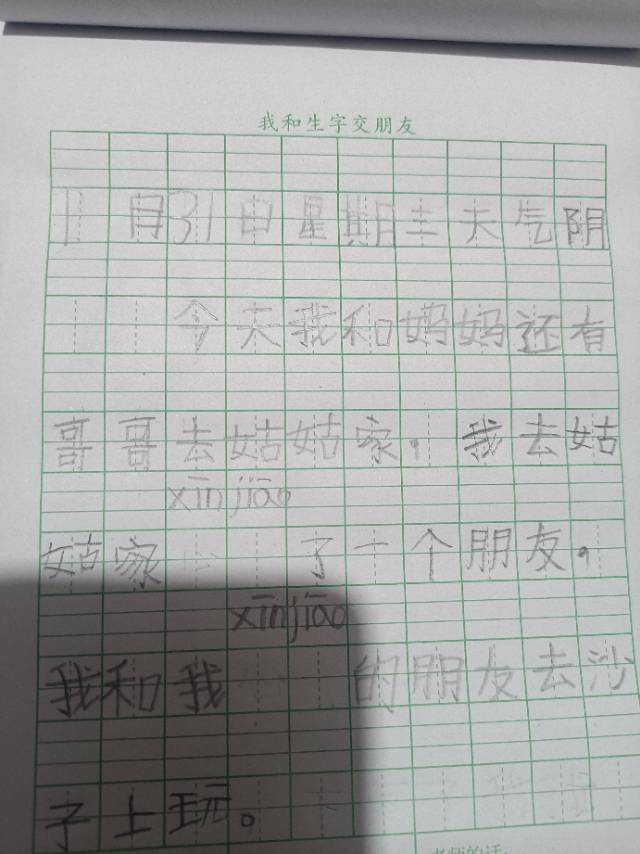 我和生字交朋友
1月31日星期三天气阴
今天我和妈妈还有
哥哥去姑姑家。我去姑
xīn jiāo
姑家了一个朋友。
xīn jiāo
我和我的朋友去沙
子上玩。
老师的话: